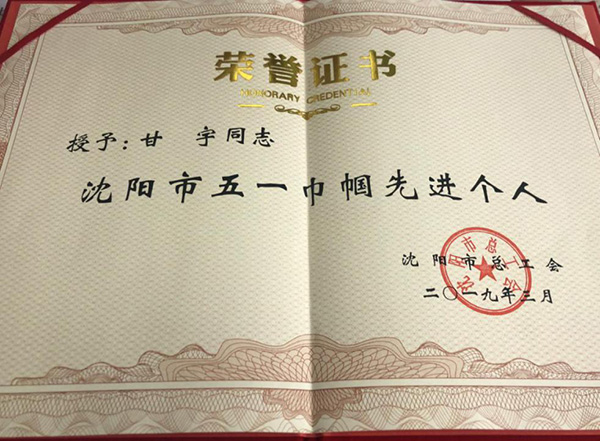 荣誉证书
HONORARY CREDENTIAL
授予：甘 宇同志
沈阳市五一巾帼先进个人
沈阳市总工会
沈阳市总工会
二〇一九年三月